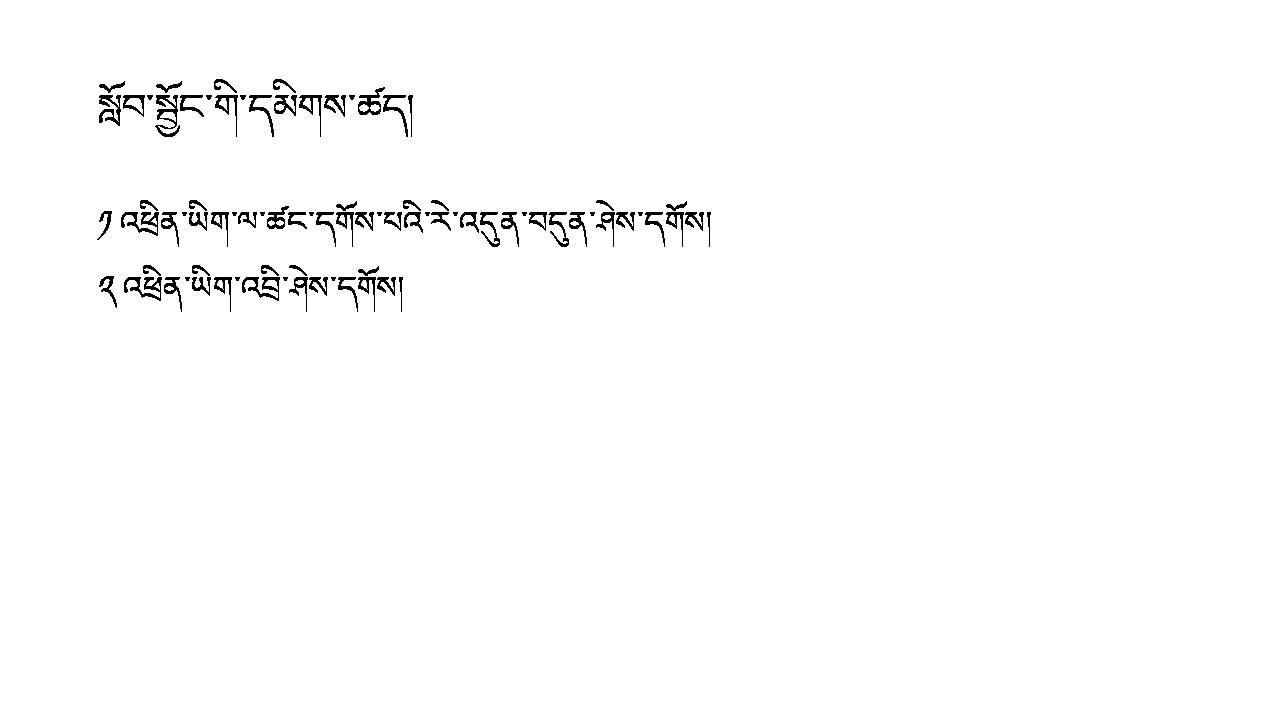 སློབ་སྦྱོང་གི་དམིགས་ཚད།
༡ འཕྲིན་ཡིག་ལ་ཚང་དགོས་པའི་རེ་འདུན་བདུན་ཤེས་དགོས།
༢ འཕྲིན་ཡིག་འབྲི་ཤེས་དགོས།